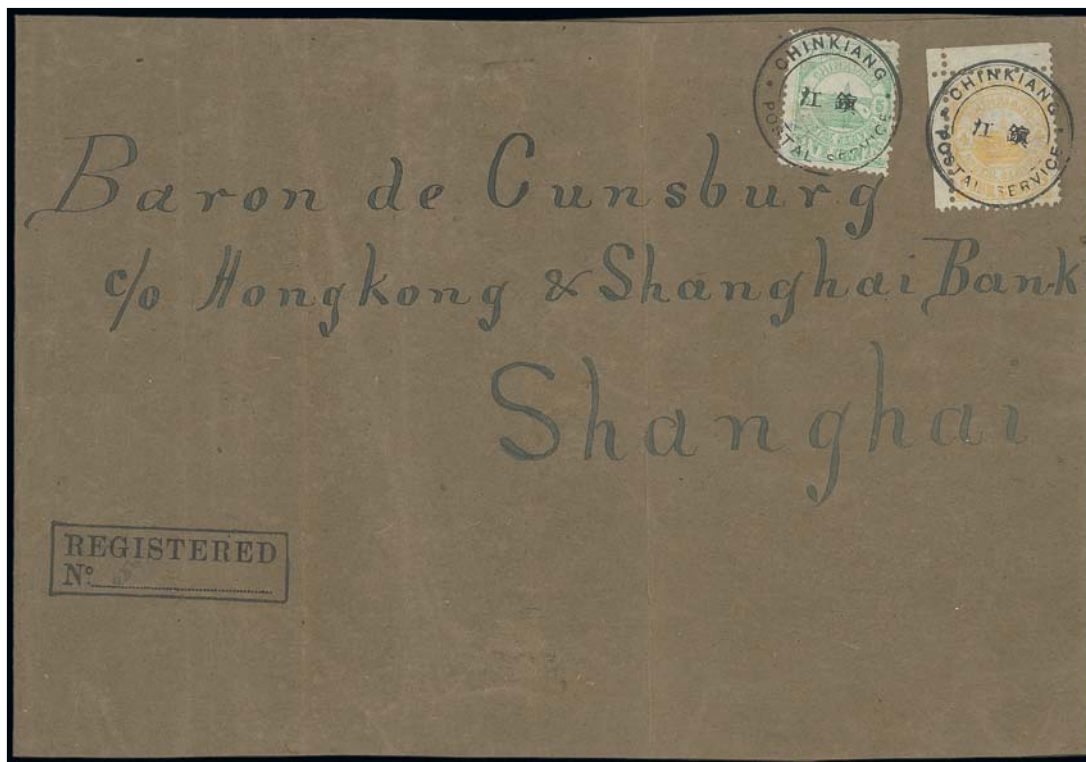 CHINKIANG
鎮江
POSTAL SERVICE
CHINKIANG
鎮江
POSTAL SERVICE
Baron de Cunsburg
c/o Hongkong & Shanghai Bank
Shanghai
REGISTERED
Nº